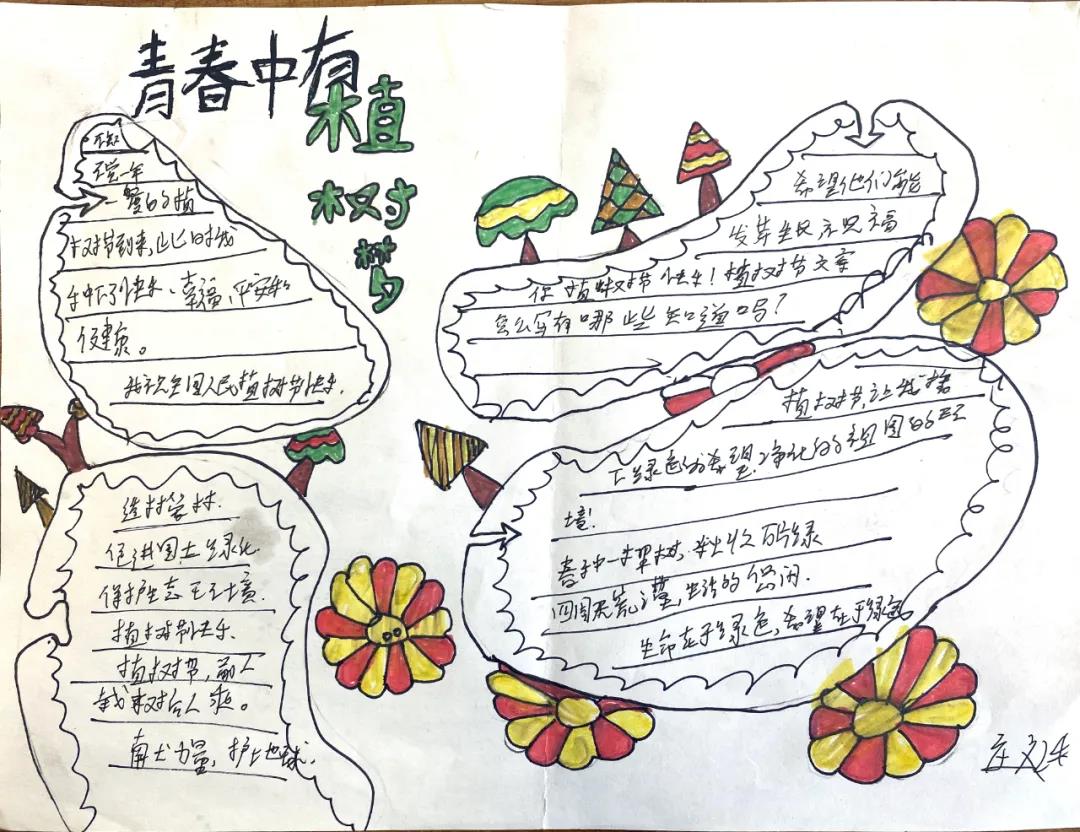 青春中有
植
树
梦
不知
觉一年
一度的植
树节到来,此时我
种下了快乐、幸福、平安和
健康。
我祝全国人民植树节快乐.
造林管林.
促进国土绿化.
保护生态王不境.
植树节快乐.
植树节,前人
栽树后人乘。
奉献力量,护上地球.
希望他们能
发芽生长示祝福
你植树节快乐!植树节文章
怎么写有哪些知道吗?
植树节,让我播
下绿色的希望净化的祖国的环
境!
春子中一棵树,秋收一片绿
四周无荒漠,生活的悠闲.
生命在于绿色,希望在于绿色